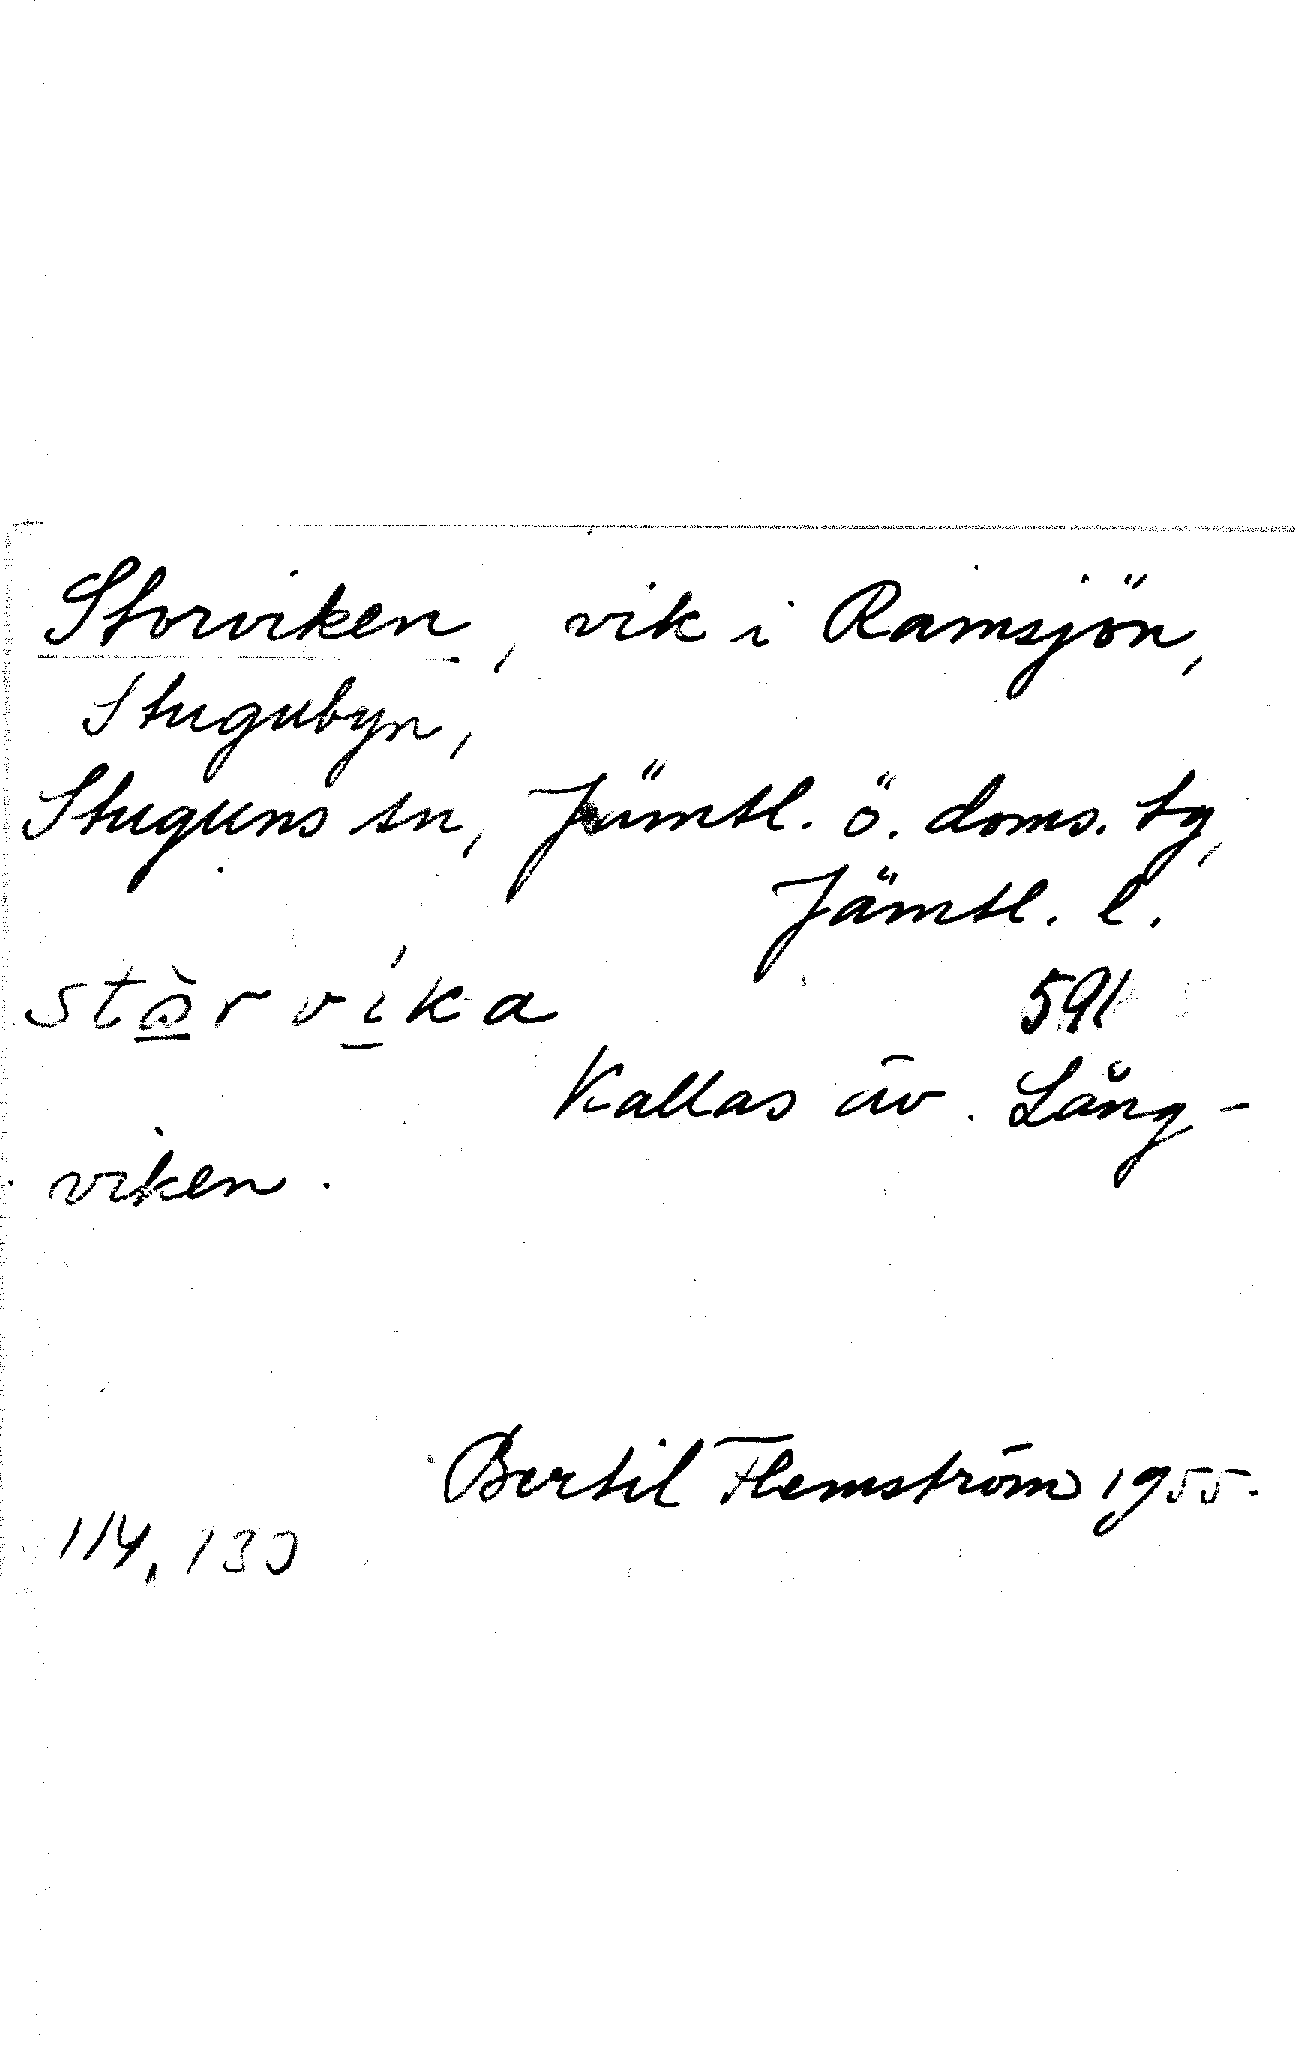 Storviken, vik i Ramsjön,
Stugubyn,
Stuguns sn, Jämtl. ö. doms. tg,
Jämtl. l.
stòrvíka 591
Kallas äv. Lång-
viken.
Bertil Flemström 1955.
114, 130